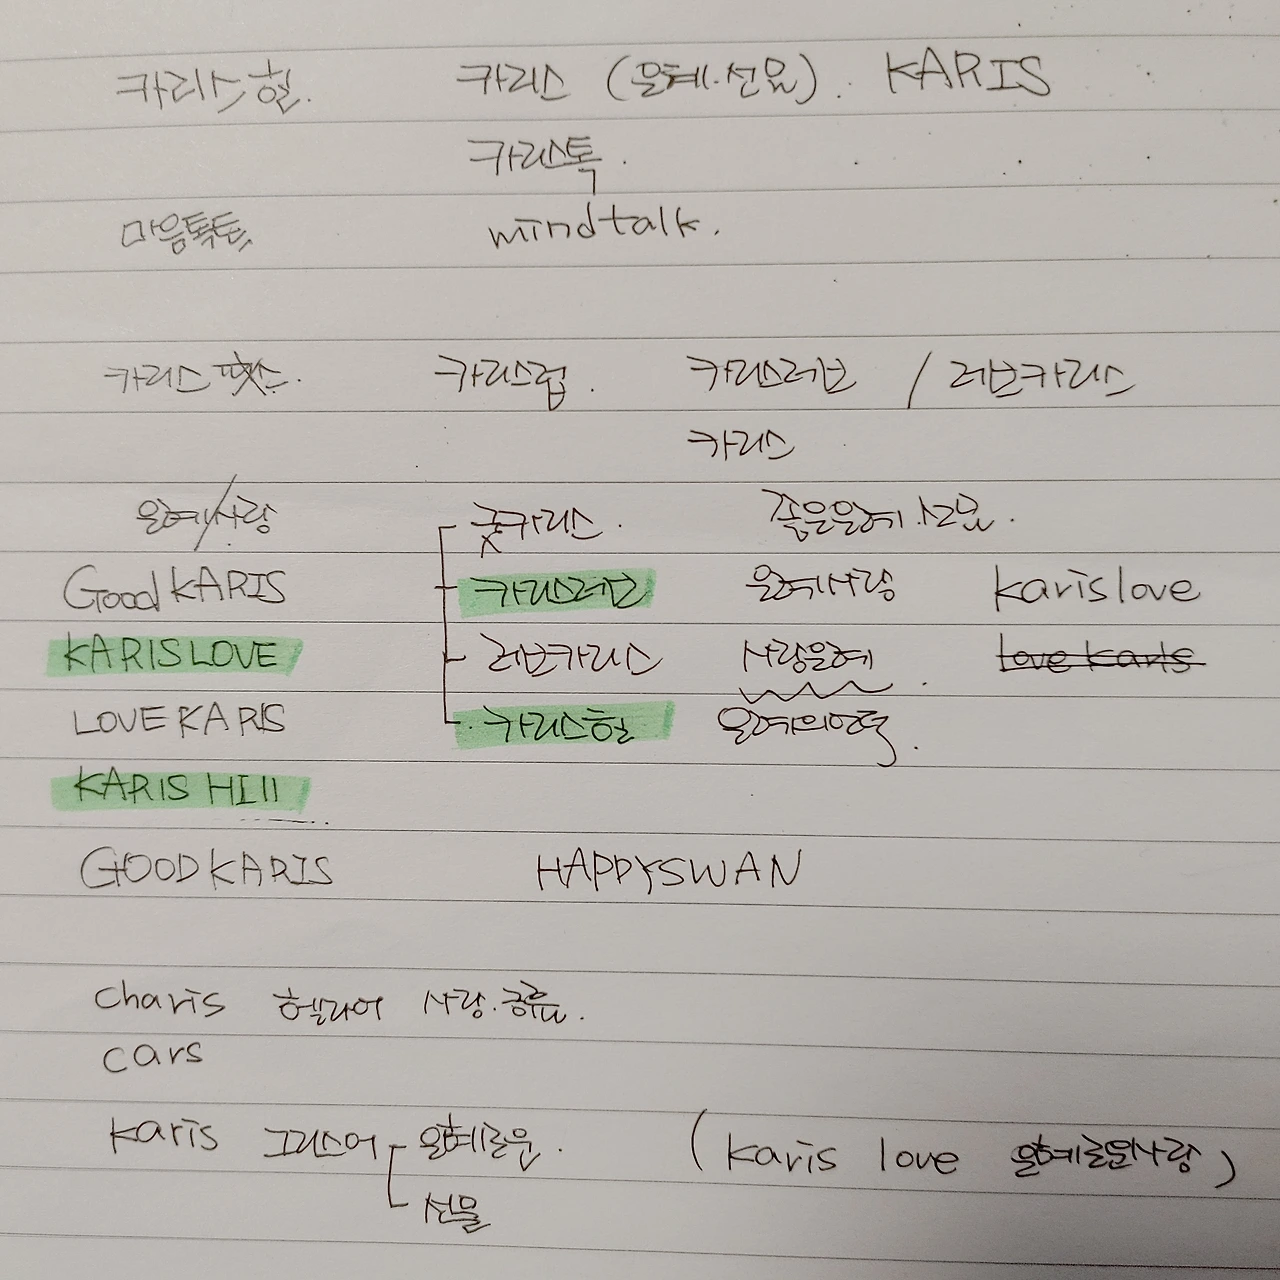 카리스힐. 카리스 (은혜.선물). KARIS
카리스톡.
마음톡톡 mindtalk.
카리스 카리스럽. 카리스러브 / 러브카리스
카리스
은혜/사랑 굿카리스. 좋은은혜.선물.
Good KARIS 카리스러브 은혜사랑 karislove
KARISLOVE 러브카리스 사랑은혜. love karis
LOVE KARIS 카리스힐 은혜의언덕.
KARIS HIll
GOODKARIS HAPPYSWAN
charis 헬라어 사랑.긍휼.
cars
karis 그리스어 은혜로운. (karis love 은혜로운사랑)
선물